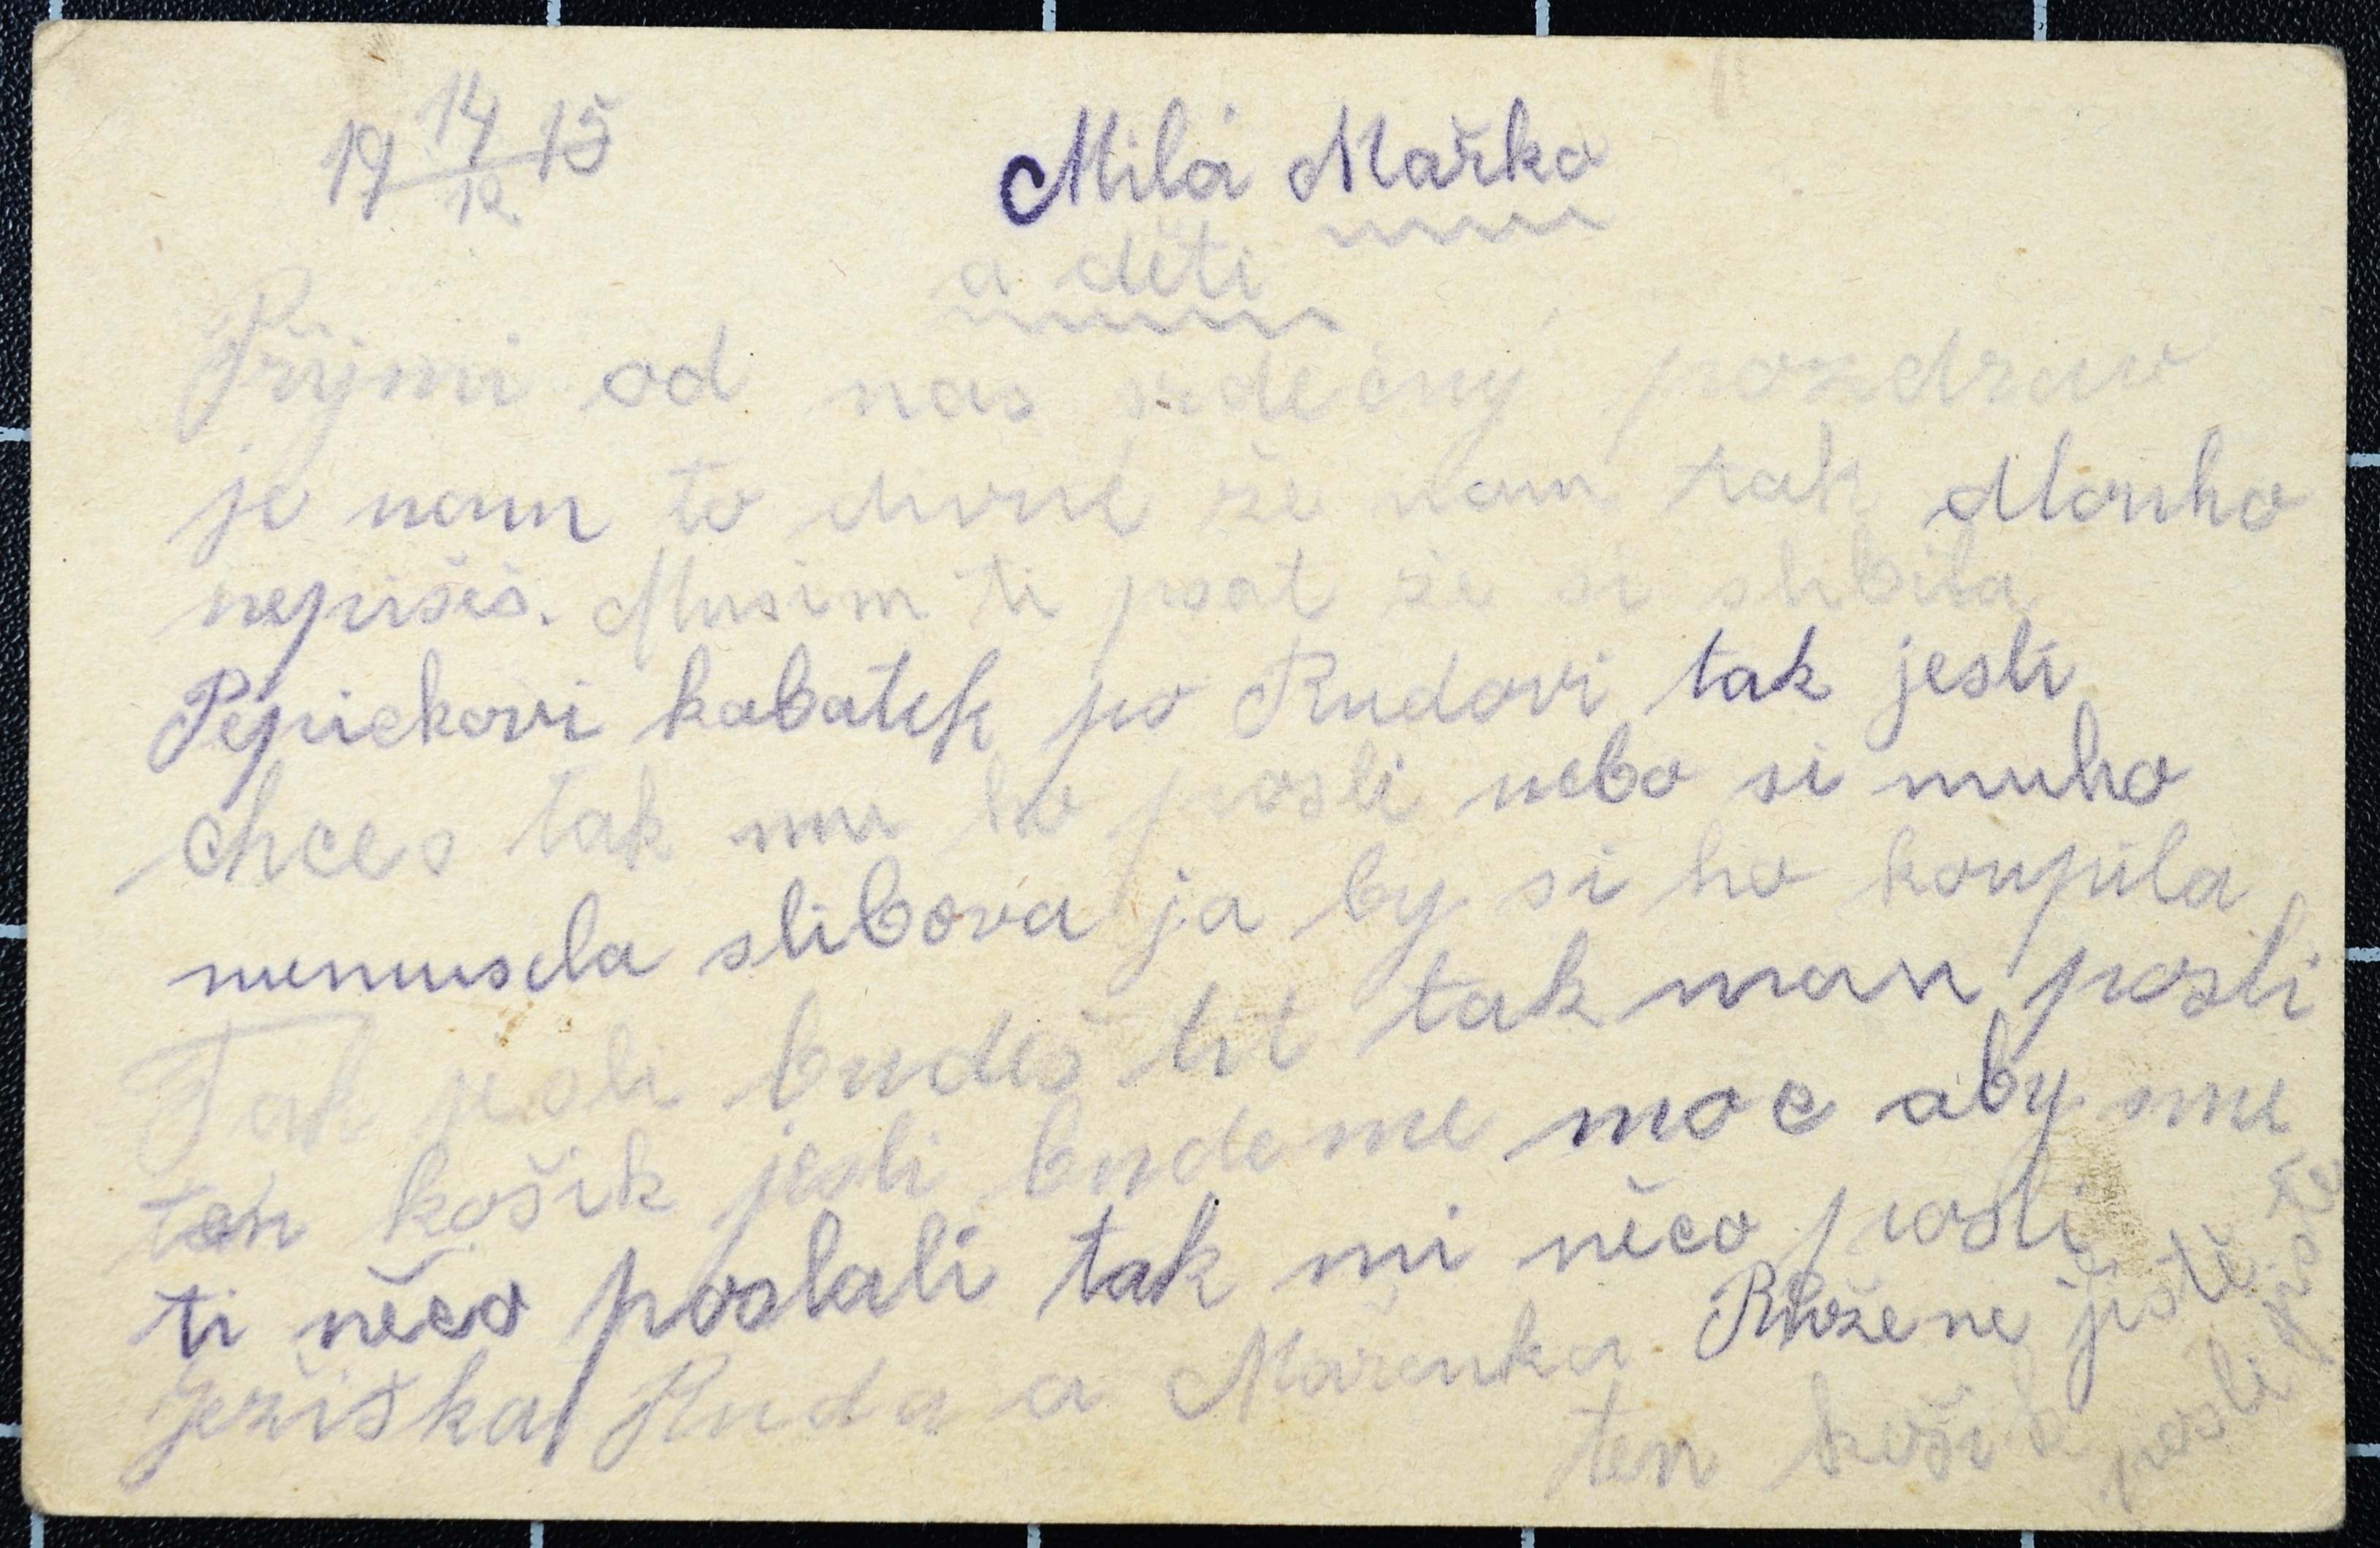 19 14/12 15
Milá Mařko
a děti
Přijmi od nas srdečný pozdrav
je nam to divné že nam tak dlouho
nepišeš. Musim ti psat že si slibila
Pepičkovi kabatek po Rudovi tak jesli
chces tak mu ho posli nebo si muho
nemusela slibova ja by si ho koupila
Tak jesli budeš tit tak man posli
ten košik jesli budeme moc aby sme
ti něco poslali tak mi něco posli
Ježiška Ruda a Mařenka Růžene jistě
ten košik posli